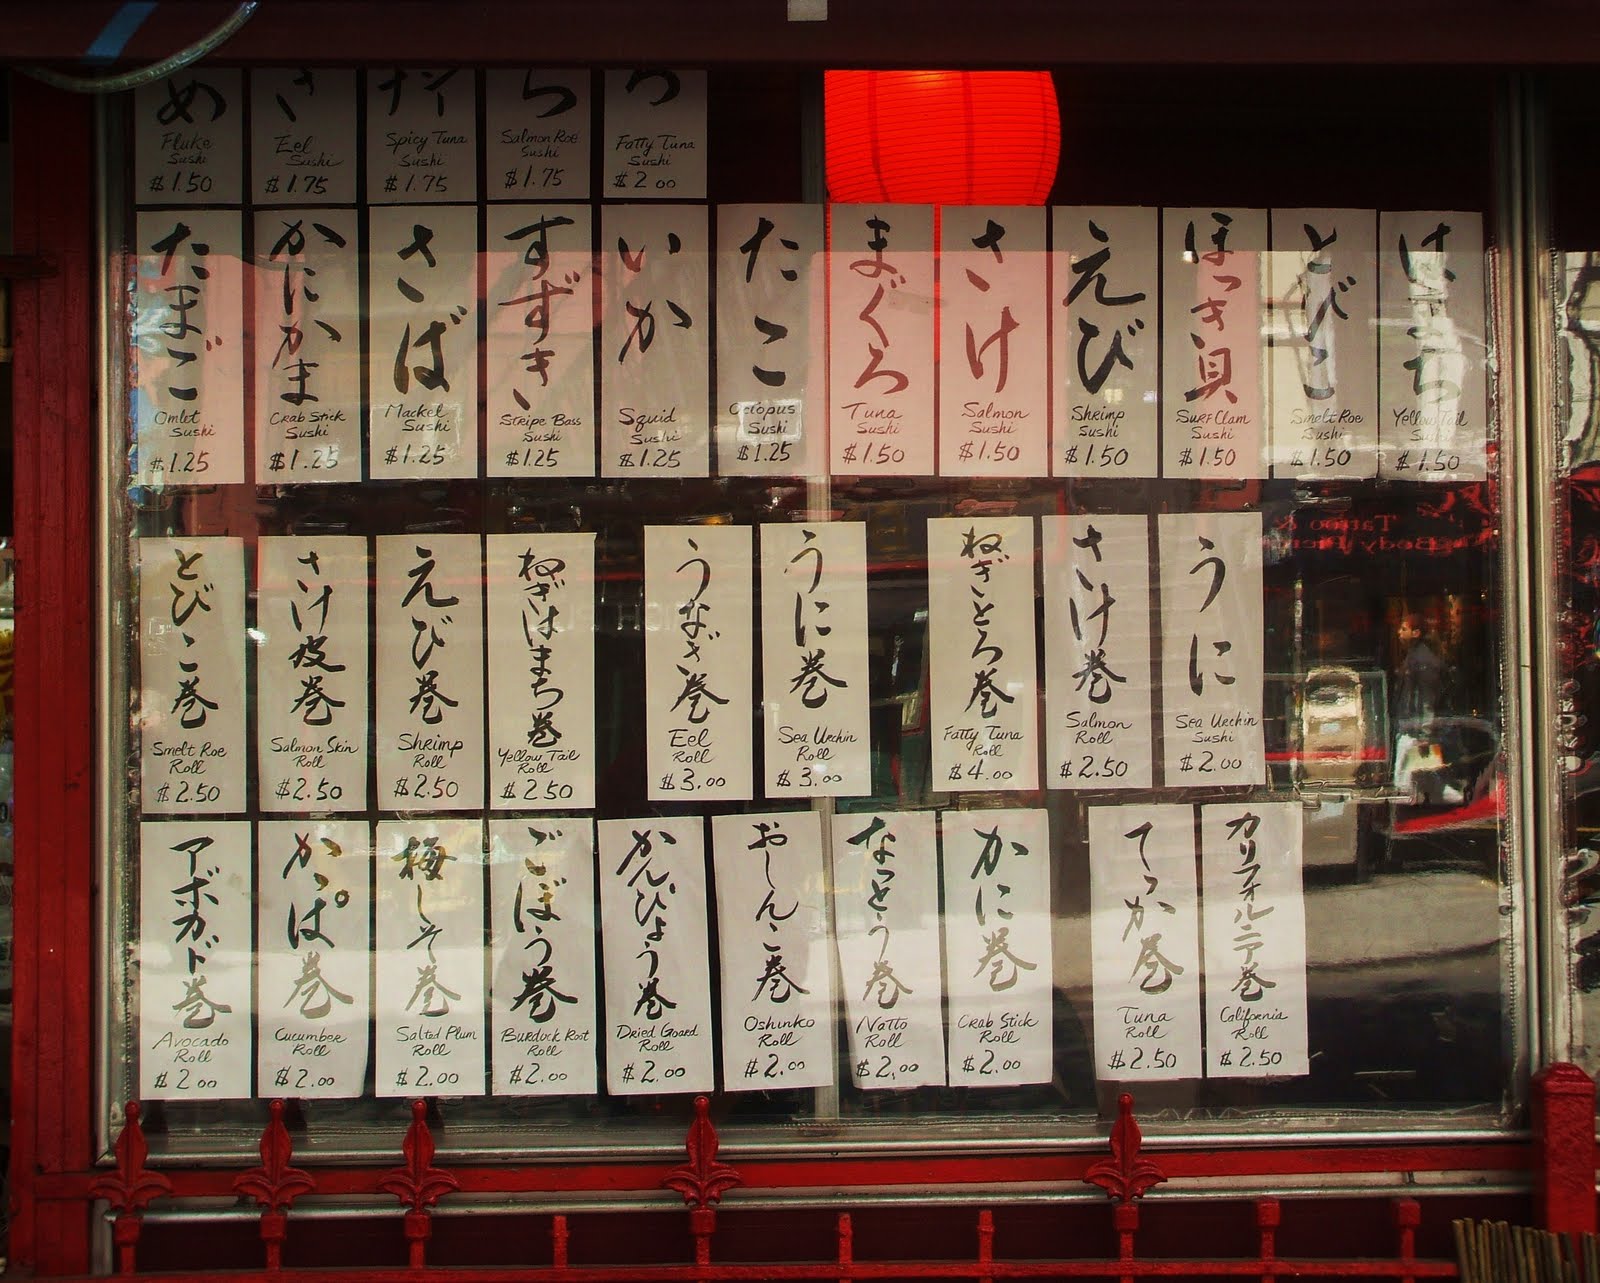 め
Fluke
Sushi
$1.50
Eel
Sushi
$1.75
Spicy Tuna
Sushi
$1.75
ら
Salmon Roe
Sushi
$1.75
ろ
Fatty Tuna
Sushi
$2.00
たまご
Omlet
Sushi
$1.25
かにかま
Crab Stick
Sushi
$1.25
さば
Mackel
Sushi
$1.25
すずき
Stripe Bass
Sushi
$1.25
いか
Squid
Sushi
$1.25
たこ
Octopus
Sushi
$1.25
まぐろ
Tuna
Sushi
$1.50
さけ
Salmon
Sushi
$1.50
えび
Shrimp
Sushi
$1.50
ほっき貝
Surf Clam
Sushi
$1.50
とびこ
Smelt Roe
Sushi
$1.50
はまち
Yellow Tail
Sushi
$1.50
とびこ巻
Smelt Roe
Roll
$2.50
さけ皮巻
Salmon Skin
Roll
$2.50
えび巻
Shrimp
Roll
$2.50
ねぎはまち巻
Yellow Tail
Roll
$2.50
うなぎ巻
Eel
Roll
$3.00
うに巻
Sea Urchin
Roll
$3.00
ねぎとろ巻
Fatty Tuna
Roll
$4.00
さけ巻
Salmon
Roll
$2.50
うに
Sea Urchin
Sushi
$2.00
アボカド巻
Avocado
Roll
$2.00
かっぱ巻
Cucumber
Roll
$2.00
梅しそ巻
Salted Plum
Roll
$2.00
ごぼう巻
Burdock Root
Roll
$2.00
かんぴょう巻
Dried Goard
Roll
$2.00
おしんこ巻
Oshinko
Roll
$2.00
なっとう巻
Natto
Roll
$2.00
かに巻
Crab Stick
Roll
$2.00
てっか巻
Tuna
Roll
$2.50
カリフォルニア巻
California
Roll
$2.50
Tattoo &
Body Pierc